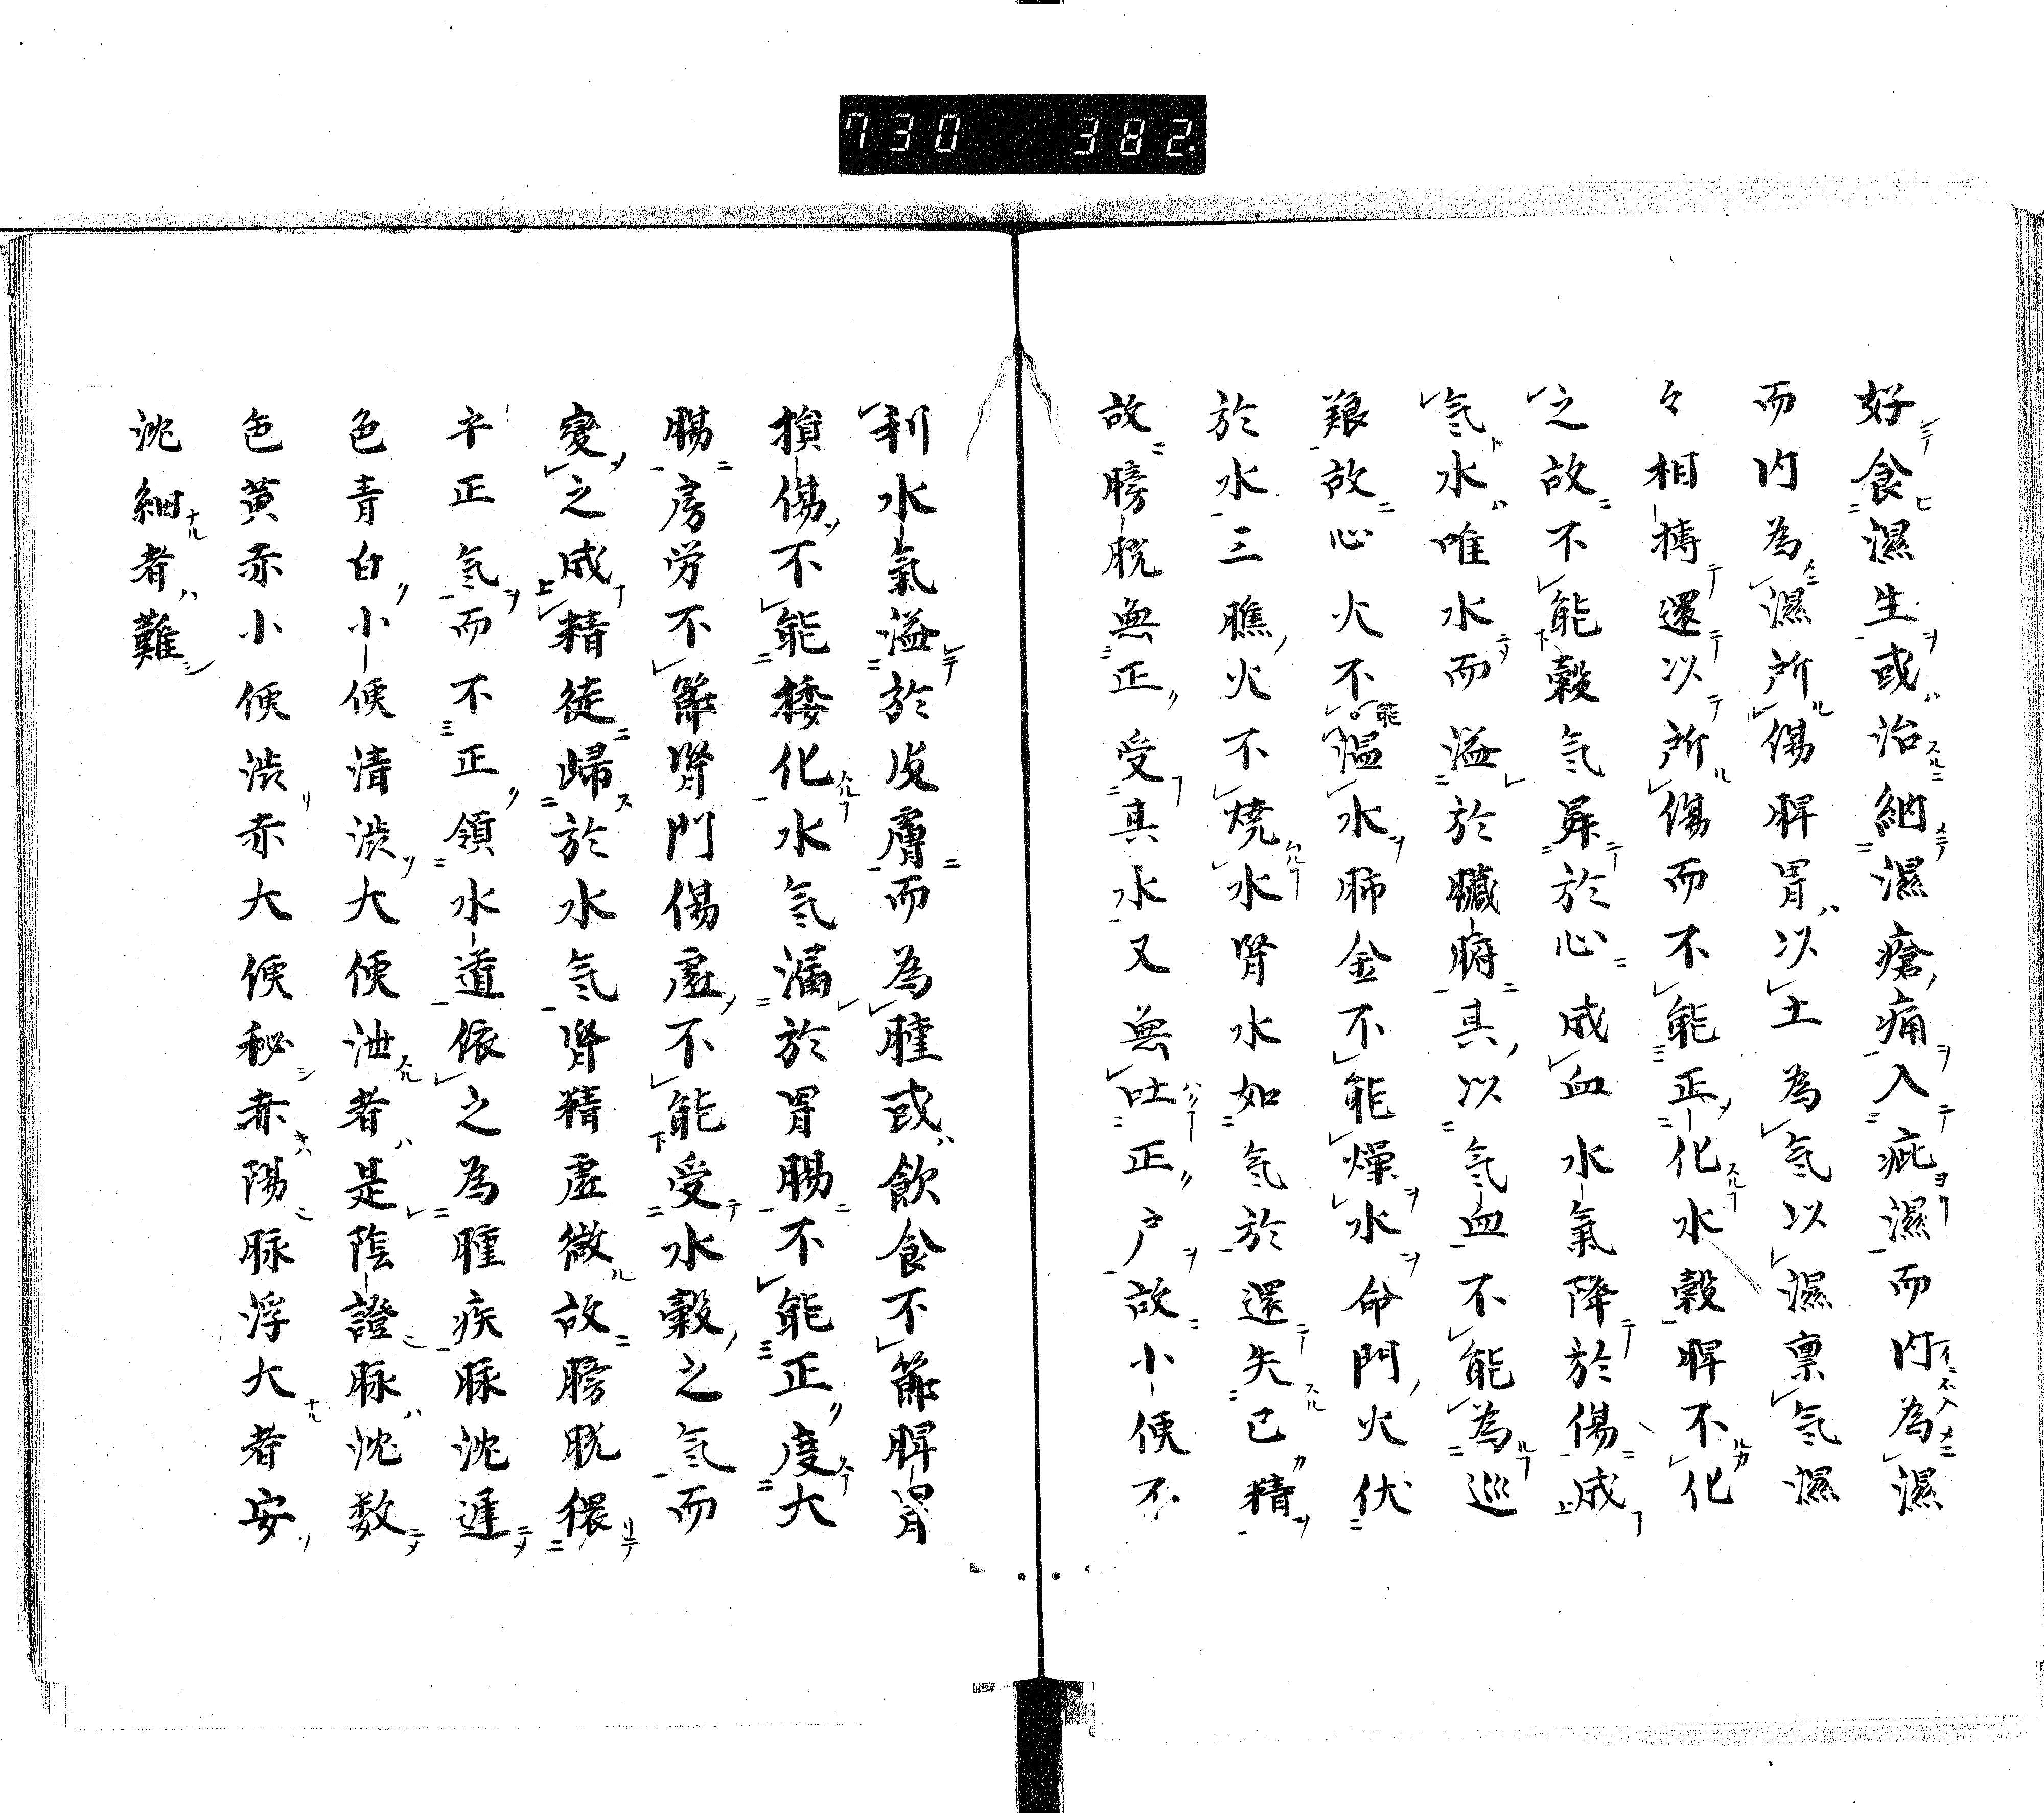 730 382.
好食濕生或治納濕瘡痛入疵濕而内為濕
而内為濕所傷脾胃以土為気以濕禀気濕
々相搏還以所傷而不能正化水穀脾不化
之故不能穀気昇於心成血水氣降於傷成
気水唯水而溢於臓腑其以気血不能為巡
艱故心火不能温水肺金不能燥水命門火伏
於水三膲火不焼水腎水如気於還失已精
故膀脱無正受其水又無吐正戸故小便不
利水氣溢於皮膚而為腫或飲食不節脾胃
損傷不能捼化水気漏於胃腸不能正度大
腸房労不節腎門傷虚不能受水穀之気而
變之成精徒帰於水気腎精虚微故膀脱
平正気而不正領水道依之為腫疾脉沈遅
色青白小便清渋大便泄者是陰證脉沈数
色黄赤小便渋赤大便秘赤陽脉浮大者安
沈細者難